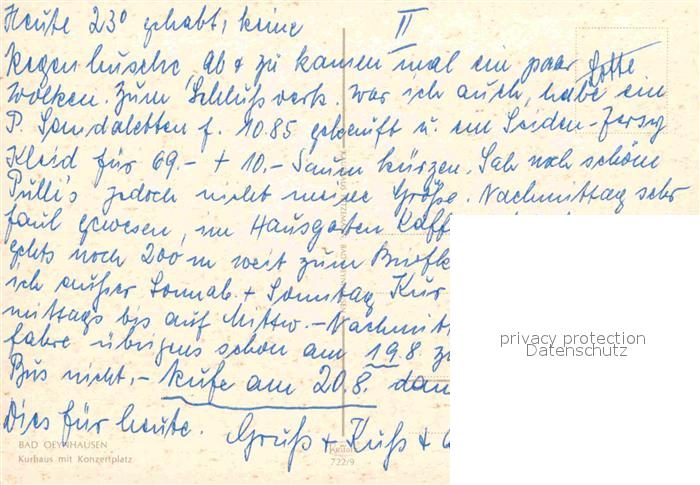 Heute 23° gehabt, keine II
Regenhusche, Ab & zu kamen mal ein paar Lotte
Wolken. Zum Schlußverk. war ich auch, habe ein
P. Sandaletten f. 10.85 gekauft u. ein Seiden-Jersey
Kleid für 69.- + 10.- Saum kürzen. Sah noch schöne
Pulli's jedoch nicht meine Größe. Nachmittag sehr
faul gewesen, im Hausgarten Kaff
gehts noch 200 m weit zum Briefk
ich außer Sonnab. + Sonntag Kur
mittags bis auf Mittw. - Nachmitt
fahre übrigens schon am 19.8. z
Bus nicht. - Rufe am 20.8. dan
Dies für heute. Gruß + Kuß +
BAD OEYNHAUSEN
Kurhaus mit Konzertplatz
722/9
privacy protection
Datenschutz